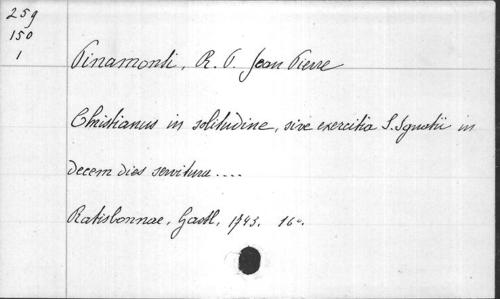 259
150
1
Pinamonti, R. P. Jean Pierre
Christianus in solitudine, sive exercitia S. Ignatii in
decem dies servitura ....
Ratisbonnae, Gastl, 1743. 16º.